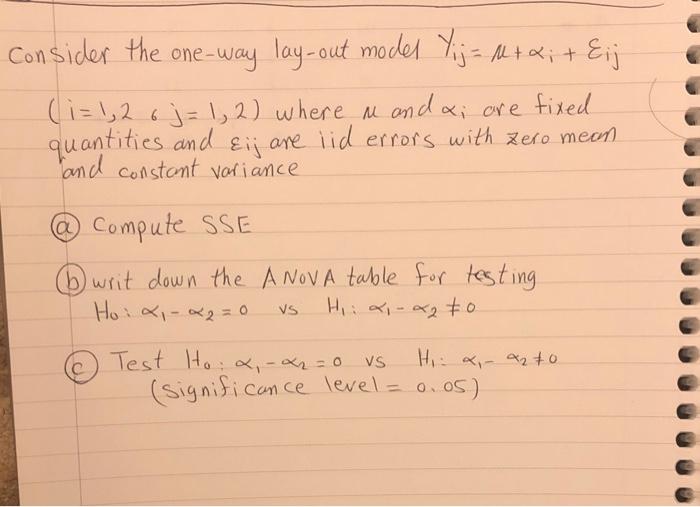 Consider the one-way lay-out model Yij = μ + αi + εij
(i=1,2 , j=1,2) where μ and αi are fixed
quantities and εij are iid errors with zero mean
and constant variance
(a) Compute SSE
(b) writ down the ANOVA table for testing
H0: α1 - α2 = 0 vs H1: α1 - α2 ≠ 0
(c) Test H0: α1 - α2 = 0 vs H1: α1 - α2 ≠ 0
(significance level = 0.05)